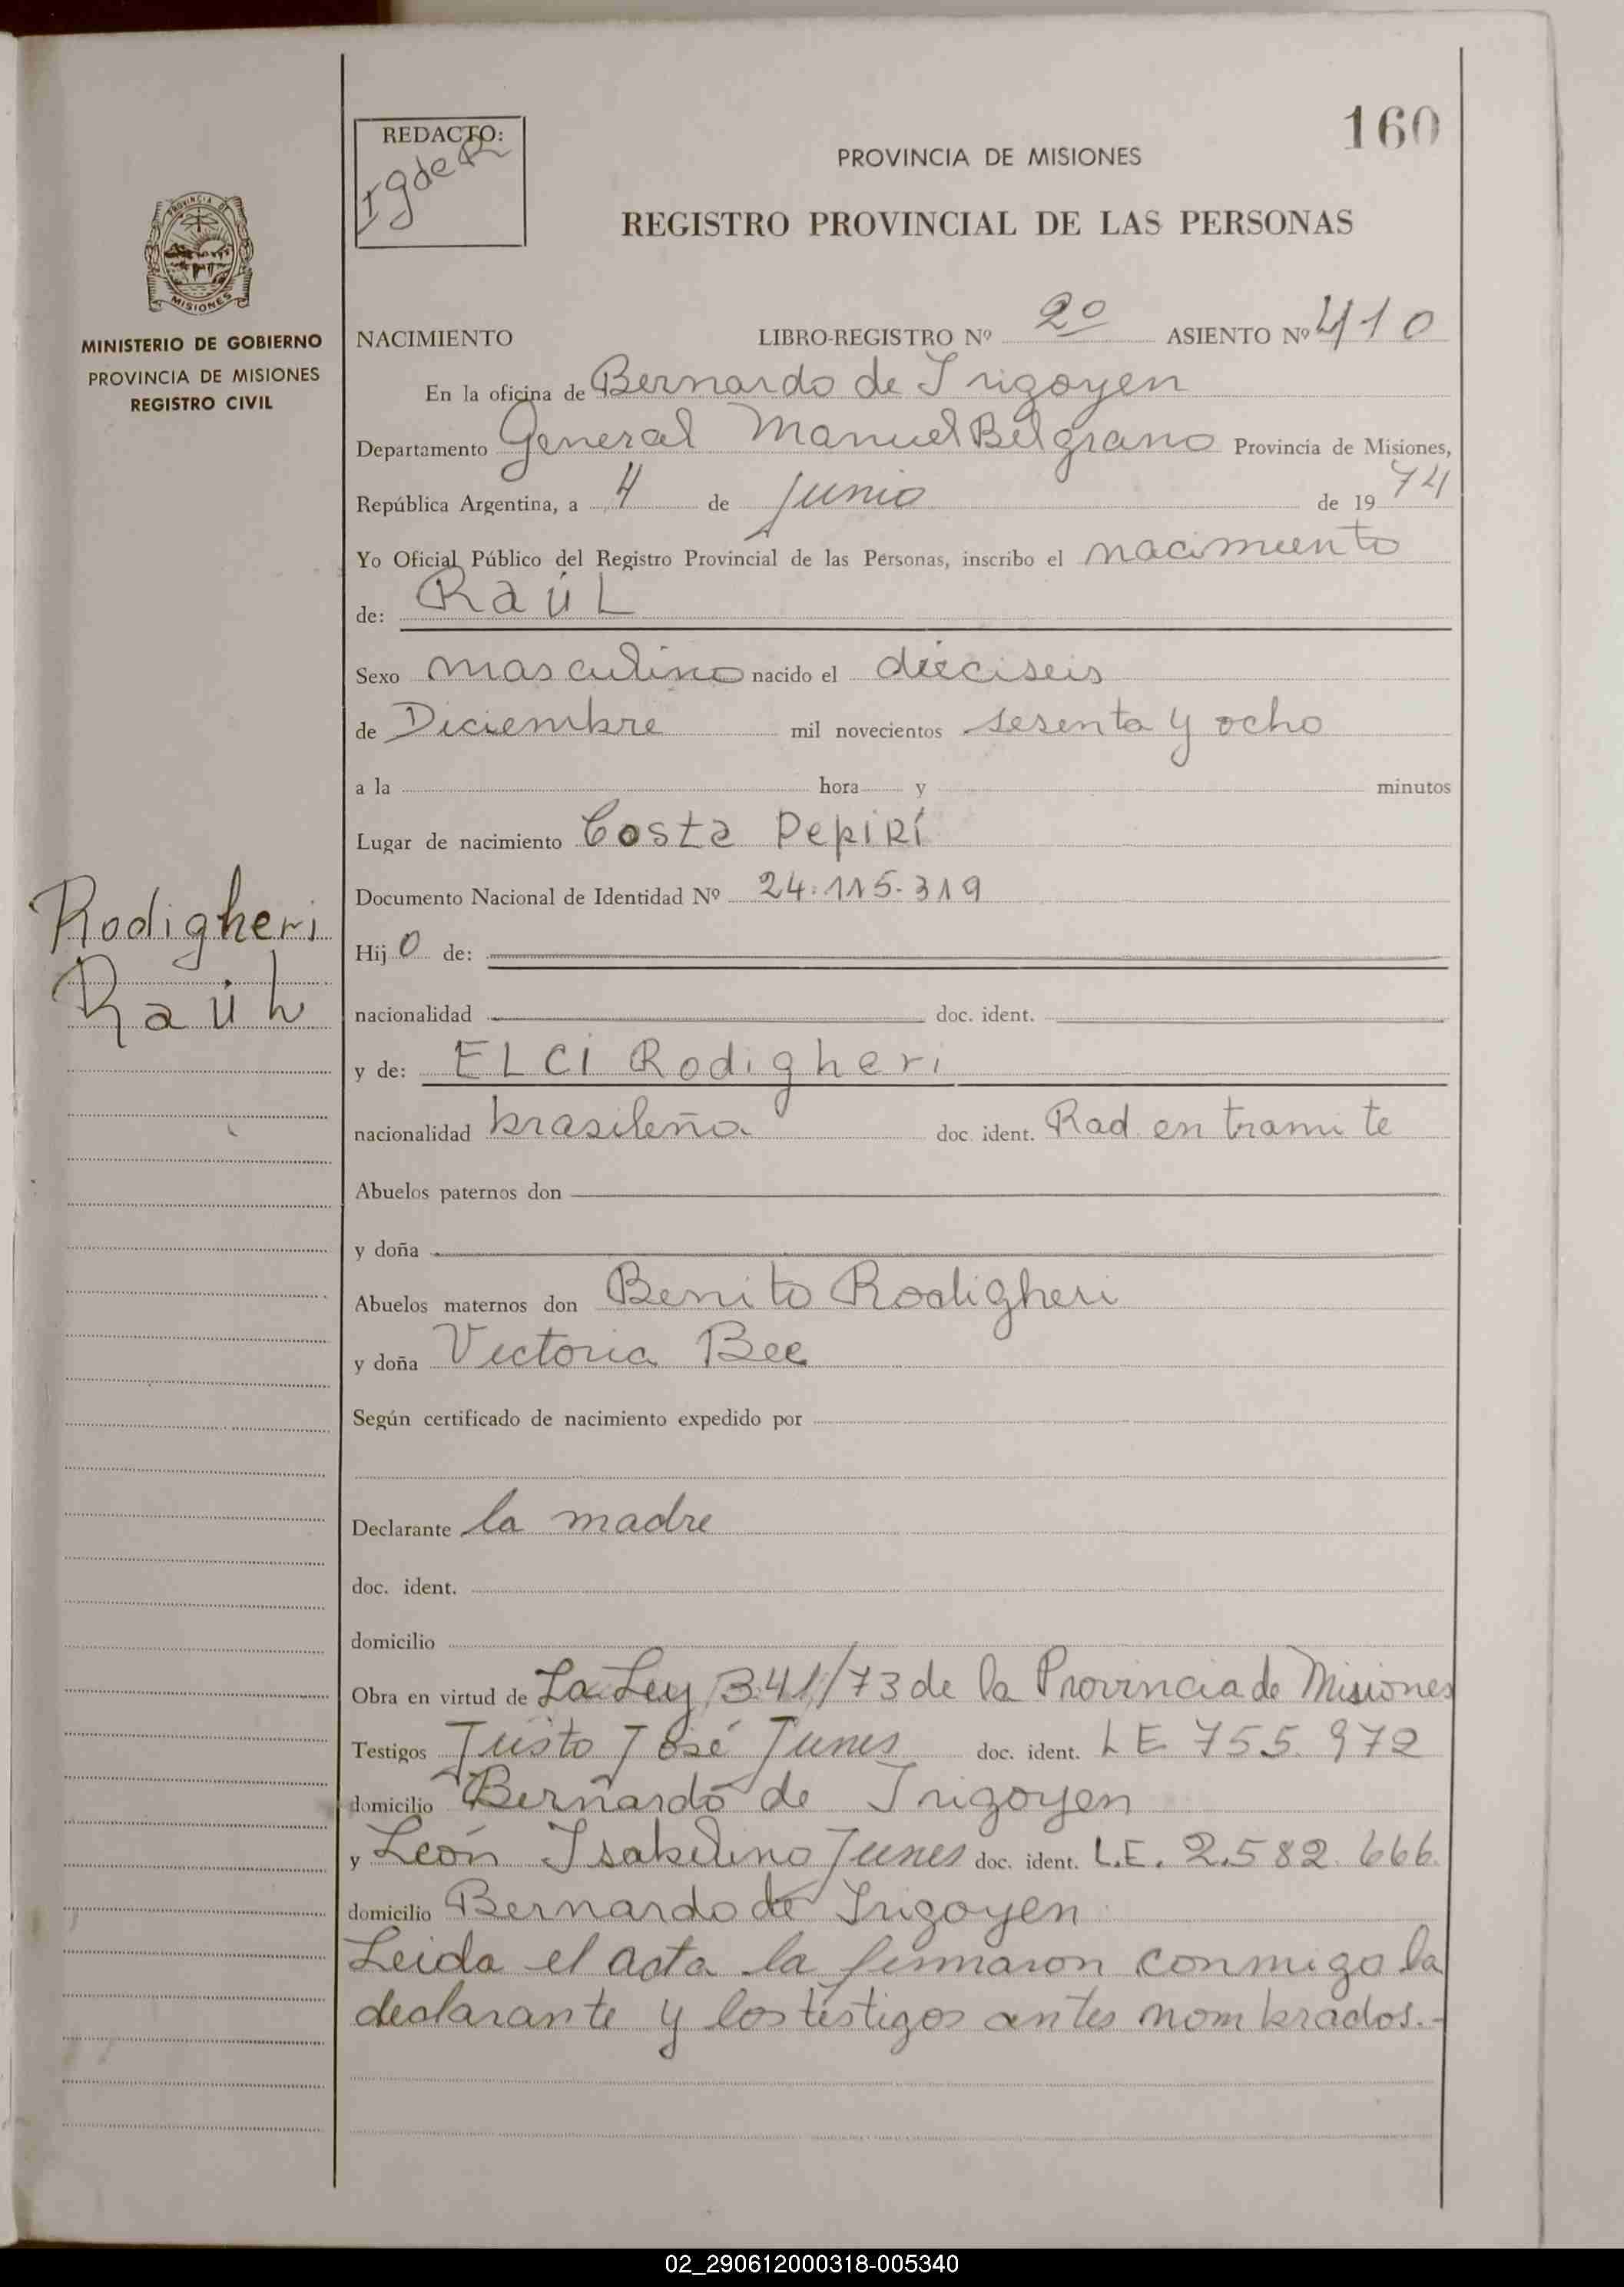 160
REDACTO:
IgdeR
PROVINCIA DE MISIONES
REGISTRO PROVINCIAL DE LAS PERSONAS
PROVINCIA DE
MISIONES
MINISTERIO DE GOBIERNO
PROVINCIA DE MISIONES
REGISTRO CIVIL
NACIMIENTO LIBRO-REGISTRO Nº 2º ASIENTO Nº 410
En la oficina de Bernardo de Irigoyen
Departamento General Manuel Belgrano Provincia de Misiones,
República Argentina, a 4 de Junio de 19 74
Yo Oficial Público del Registro Provincial de las Personas, inscribo el nacimiento
de: RaúL
Sexo masculino nacido el dieciseis
de Diciembre mil novecientos sesenta y ocho
a la hora y minutos
Lugar de nacimiento Costa Pepirí
Documento Nacional de Identidad Nº 24.115.319
Rodigheri
Raúl
Hijo de:
nacionalidad doc. ident.
y de: ELCI Rodigheri
nacionalidad brasileña doc. ident. Rad. en tramite
Abuelos paternos don
y doña
Abuelos maternos don Benito Rodigheri
y doña Victoria Bee
Según certificado de nacimiento expedido por
Declarante la madre
doc. ident.
domicilio
Obra en virtud de La Ley 341/73 de la Provincia de Misiones
Testigos Justo José Junes doc. ident. LE 755.972
domicilio Bernardo de Irigoyen
y León Isabelino Junes doc. ident. L.E. 2.582.666
domicilio Bernardo de Irigoyen
Leida el acta la firmaron conmigo la
declarante y los testigos antes nombrados.-
02_290612000318-005340